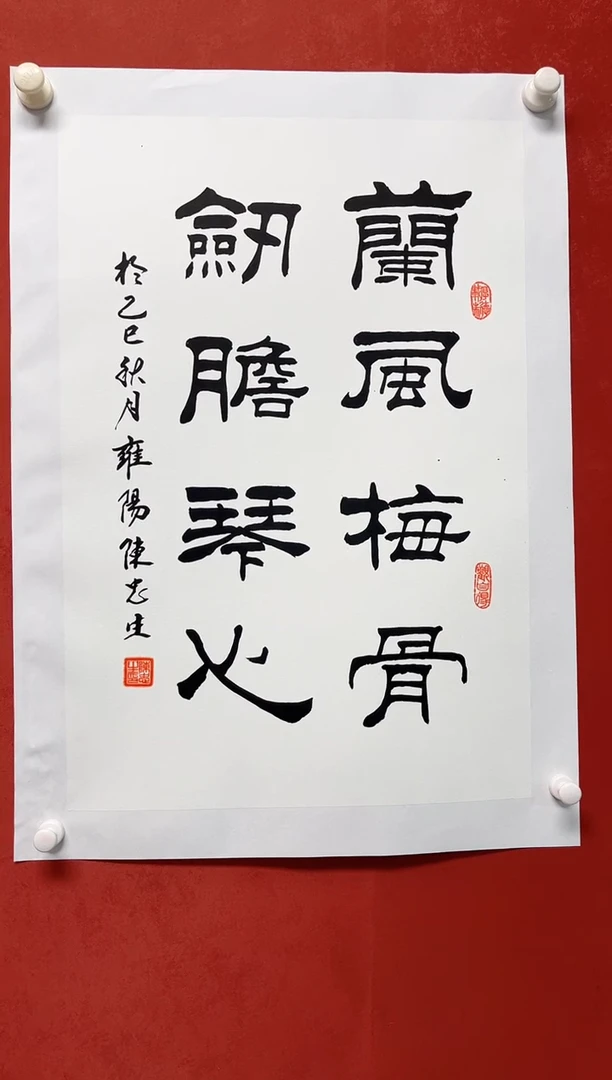 蘭風梅骨
劒膽琴心
於乙巳秋月雍陽陳忠生